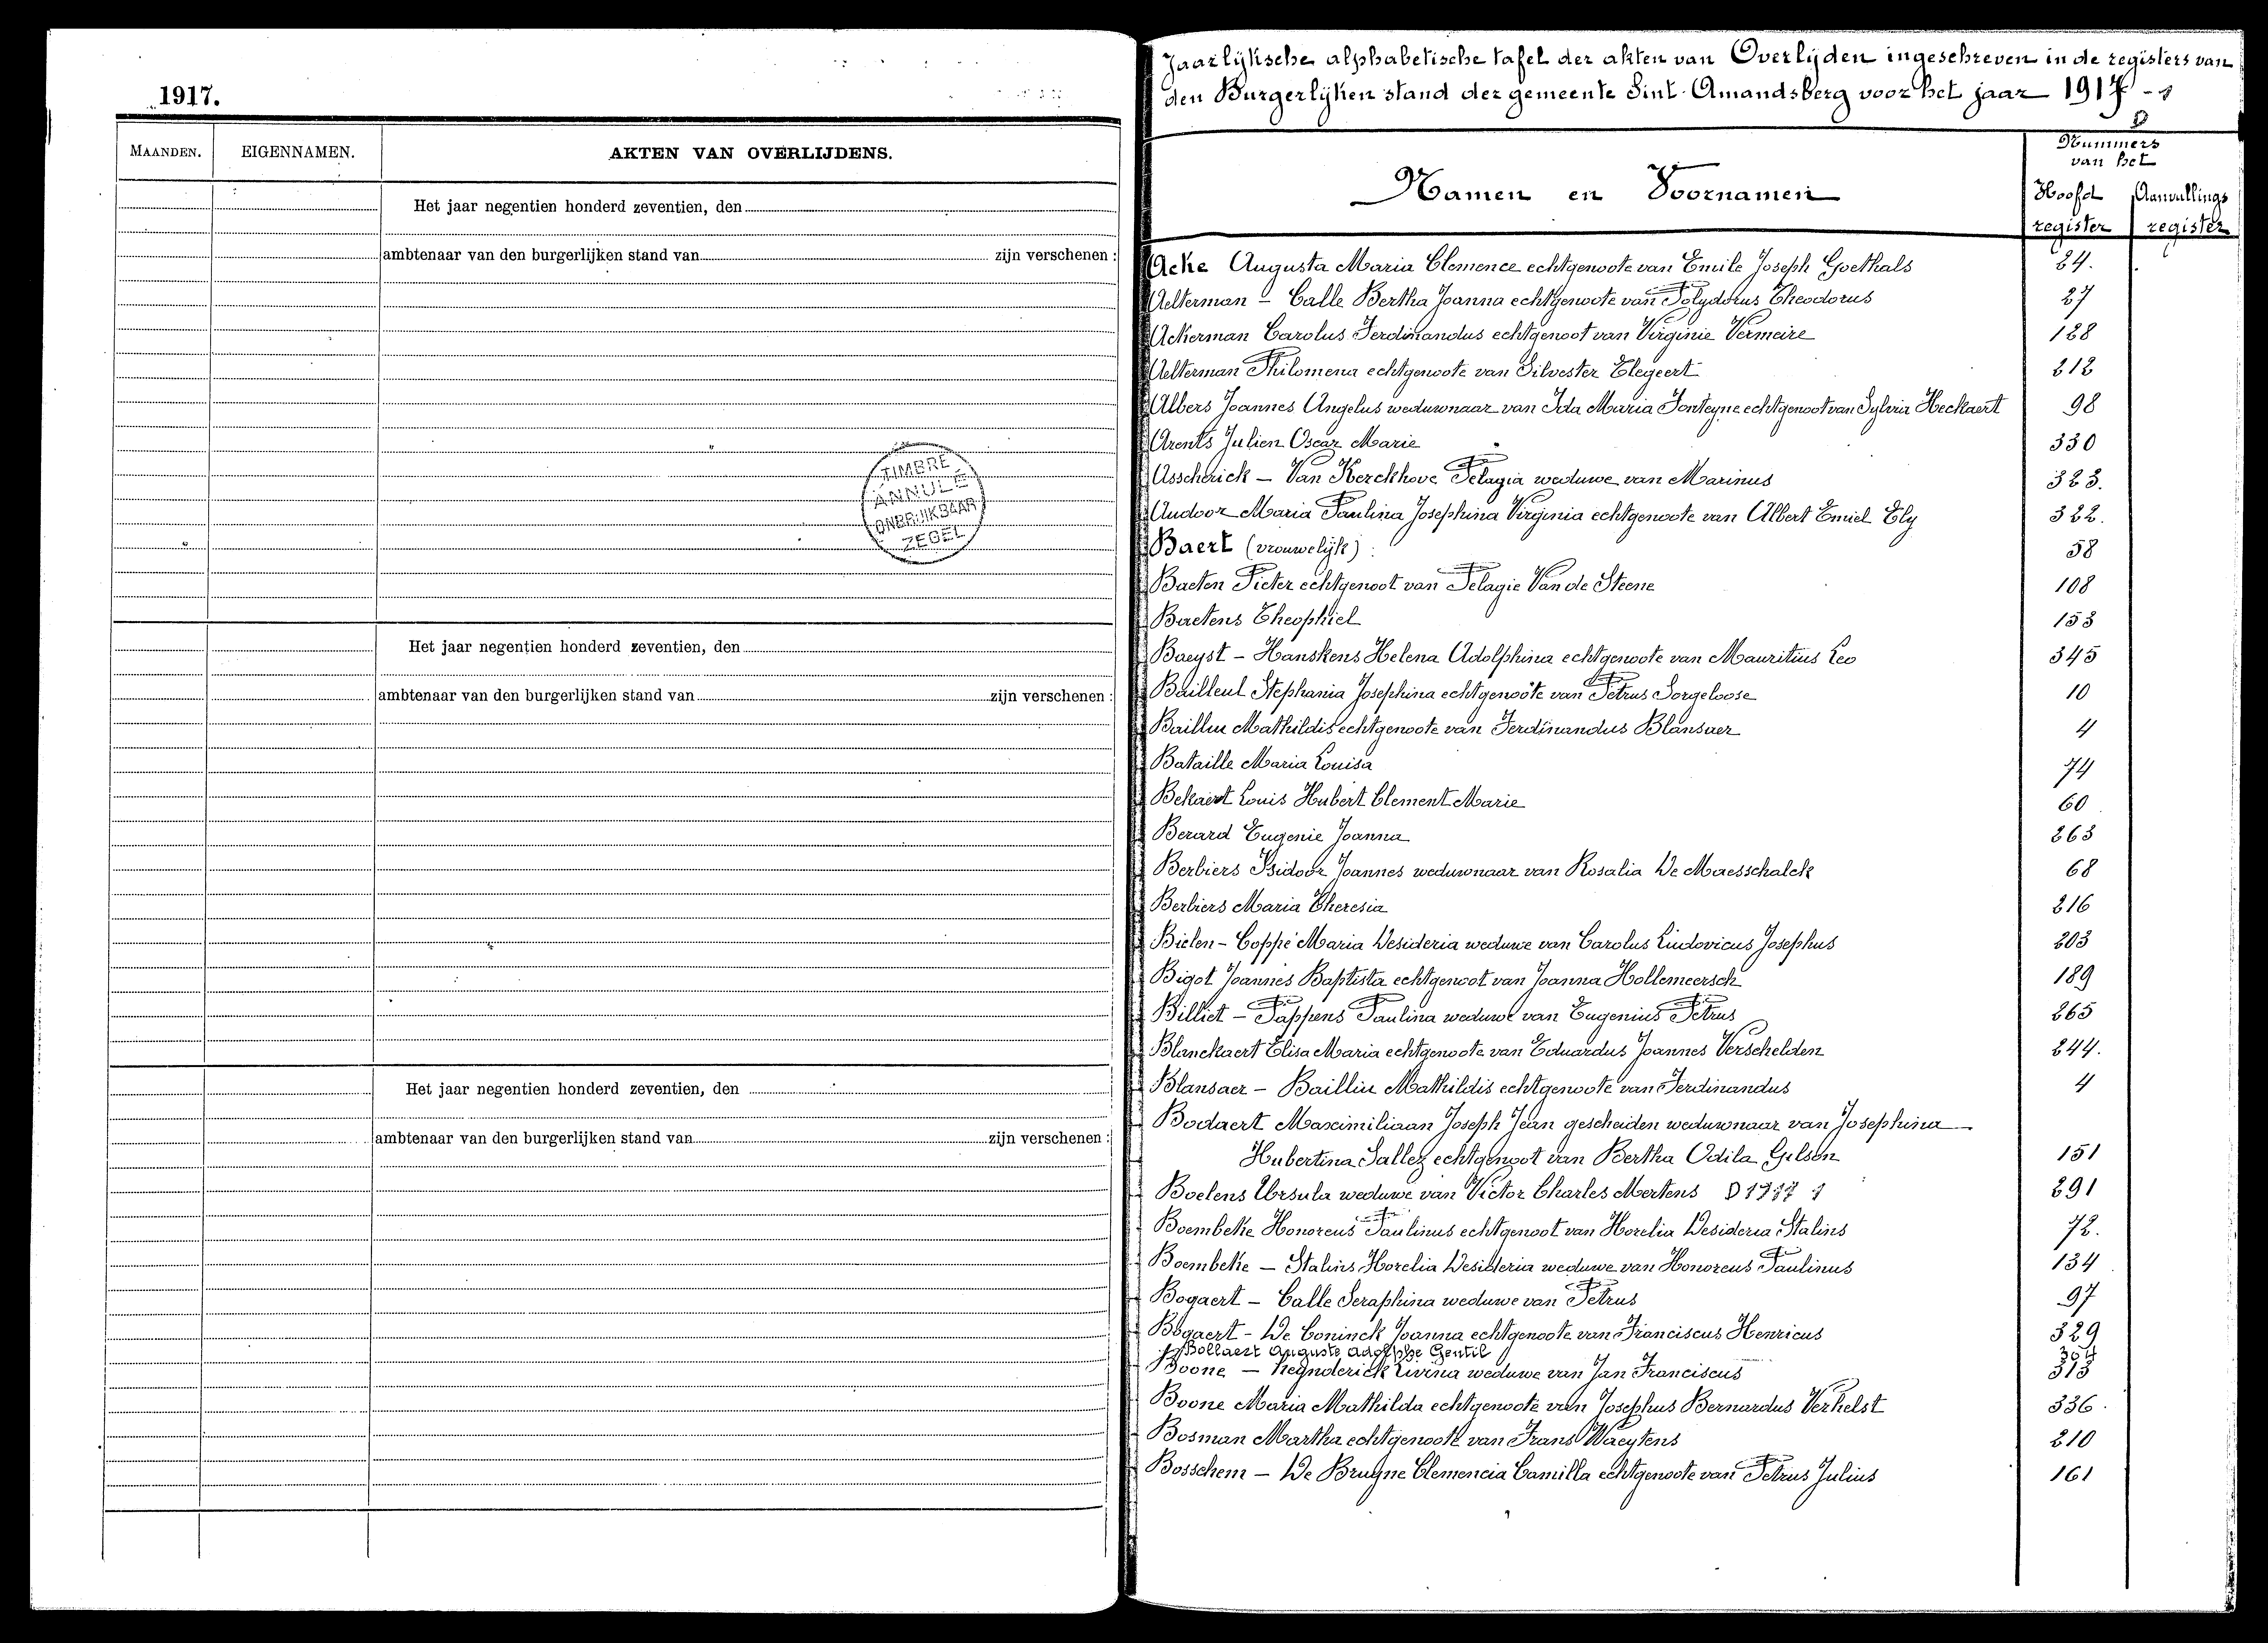 1917.
MAANDEN. EIGENNAMEN. AKTEN VAN OVERLIJDENS.
Het jaar negentien honderd zeventien, den
ambtenaar van den burgerlijken stand van zijn verschenen :
TIMBRE
ANNULÉ
ONBRUIKBAAR
ZEGEL
Het jaar negentien honderd zeventien, den
ambtenaar van den burgerlijken stand van zijn verschenen :
Het jaar negentien honderd zeventien, den
ambtenaar van den burgerlijken stand van zijn verschenen :
Jaarlijksche alphabetische tafel der akten van Overlijden ingeschreven in de registers van
den Burgerlijken stand der gemeente Sint-Amandsberg voor het jaar 1917 - 1
D
Nummers
van het
Namen en Voornamen
Hoofd Aanvullings
register register
Acke Augusta Maria Clemence echtgenoote van Emile Joseph Goethals 24.
Aelterman - Calle Bertha Joanna echtgenoote van Polydorus Theodorus 27
Ackerman Carolus Ferdinandus echtgenoot van Virginie Vermeire 128
Aelterman Philomena echtgenoote van Silvester Elegeert 212
Albers Joannes Angelus weduwnaar van Ida Maria Fonteyne echtgenoot van Sylvia Heckaert 98
Arents Julien Oscar Marie 330
Asscherick - Van Kerckhove Pelagia weduwe van Marinus 323.
Audoor Maria Paulina Josephina Virginia echtgenoote van Albert Emiel Ely 322.
Baert (vrouwelijk) : 58
Baeten Pieter echtgenoot van Pelagie Van de Steene 108
Baetens Theophiel 153
Baeyst - Hanskens Helena Adolphina echtgenoote van Mauritius Leo 345
Bailleul Stephania Josephina echtgenoote van Petrus Sorgeloose 10
Baillu Mathildis echtgenoote van Ferdinandus Blansaer 4
Bataille Maria Louisa 74
Bekaert Louis Hubert Clement Marie 60
Berard Eugenie Joanna 263
Berbiers Isidoor Joannes weduwnaar van Rosalia De Maesschalck 68
Berbiers Maria Theresia 216
Bielen - Coppé Maria Desideria weduwe van Carolus Ludovicus Josephus 203
Bigot Joannes Baptista echtgenoot van Joanna Hollemeersch 189
Billiet - Pappens Paulina weduwe van Eugenius Petrus 265
Blanckaert Elisa Maria echtgenoote van Eduardus Joannes Verschelden 244.
Blansaer - Baillu Mathildis echtgenoote van Ferdinandus 4
Bodaert Maximiliaan Joseph Jean gescheiden weduwnaar van Josephina
Hubertina Sallez echtgenoot van Bertha Odila Gilson 151
Boelens Ursula weduwe van Victor Charles Mertens D 1917 1 291
Boembeke Honoreus Paulinus echtgenoot van Horelia Desideria Stalins 72.
Boembeke - Stalins Horelia Desideria weduwe van Honoreus Paulinus 134
Bogaert - Calle Seraphina weduwe van Petrus 97
Bogaert - De Coninck Joanna echtgenoote van Franciscus Henricus 329
Bollaert Auguste Adolphe Gentil
Boone - Reynderick Livina weduwe van Jan Franciscus 313
Boone Maria Mathilda echtgenoote van Josephus Bernardus Verhelst 336.
Bosman Martha echtgenoote van Frans Waeytens 210
Bosschem - De Bruyne Clemencia Camilla echtgenoote van Petrus Julius 161